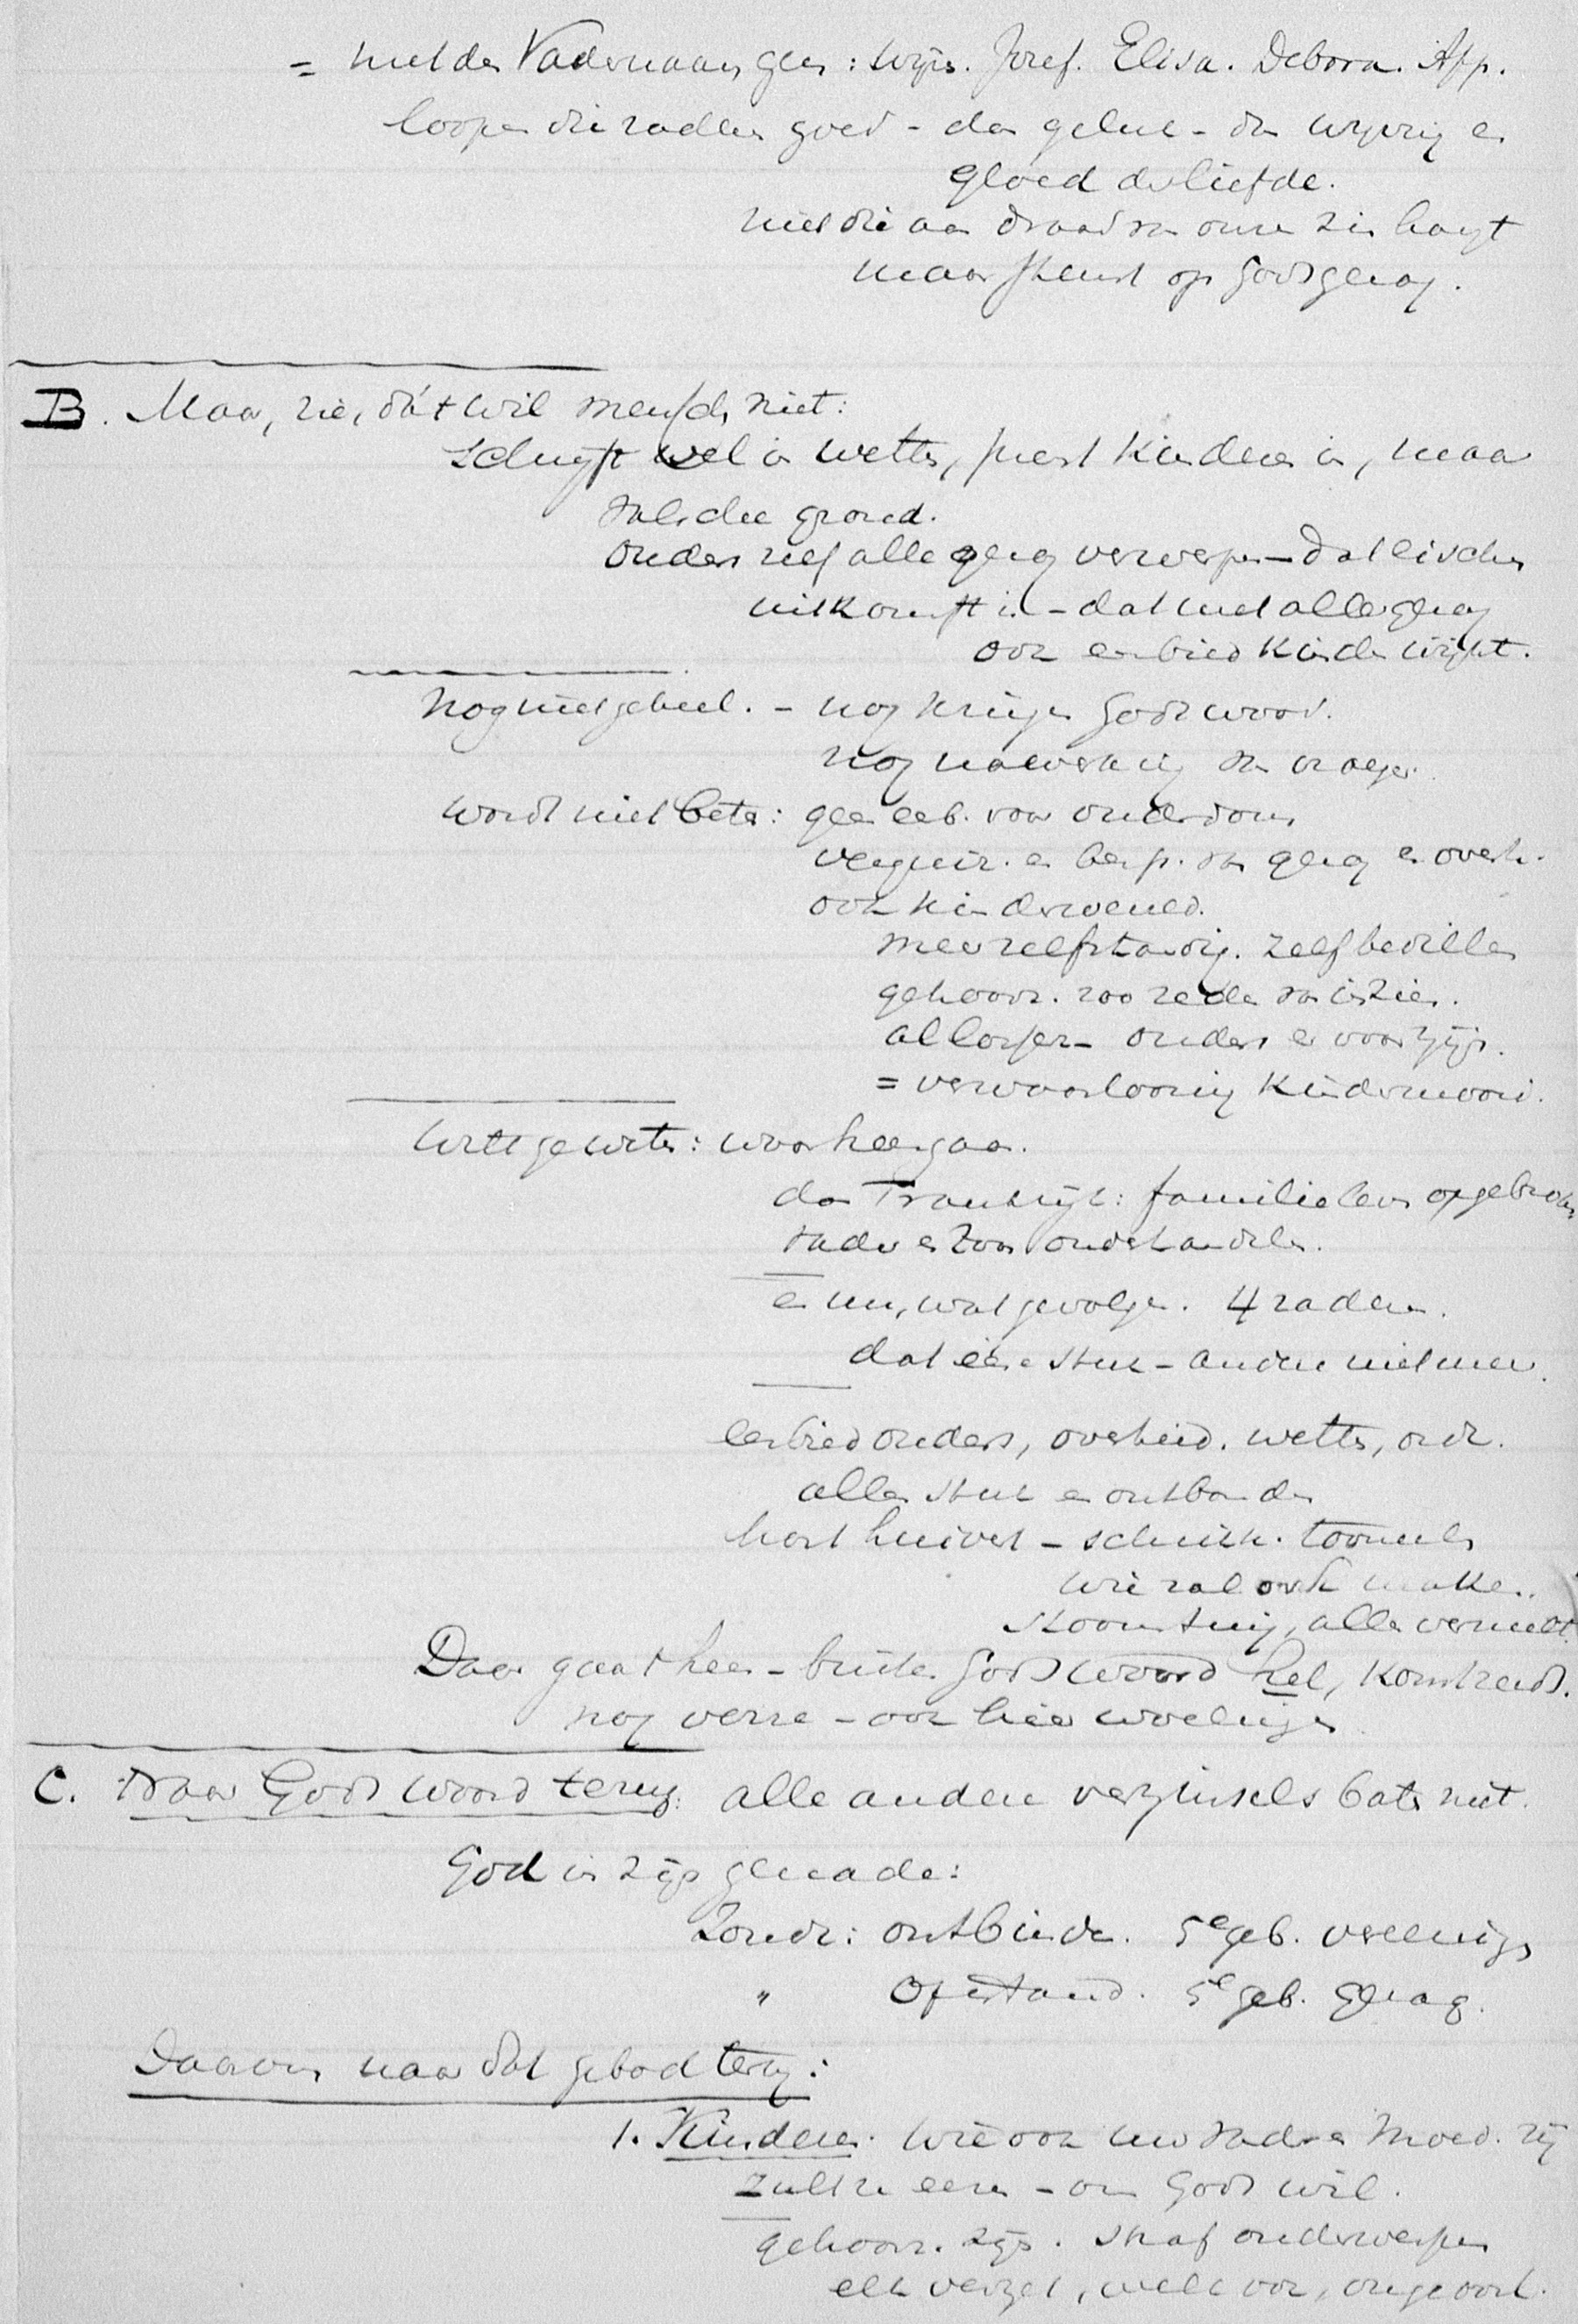 = met den Vadernaam geëer: wijs. Jozef. Elisa. Debora. App.
loopen die raderen goed - dan geluk - dan wijding en
gloed der liefde.
niet die aan draad van onze zin hangt
maar steunt op Gods gezag.
B. Maar, zie, dát wil mensch niet:
schrijft wel in wetten, prent kinderen in, maar
valsche grond.
ouders zelf alle gezag verwerpen - dat eischen
uitkomst is - dat met alle gezag
ook eerbied kinderen wijkt.
Nog niet geheel. - nog kringen Gods woord.
nog nawerking van vroeger.
wordt niet beter: geen eerb. voor ouderdom
en besp. van gezag en overh.
ook kinderwereld.
meer zelfstandig. zelf bedillen
gehoorz. zoo reden van inzien.
ouders er voor zijn.
= verwaarloozing kindermoord.
Wilt ge weten: waarheen gaan.
dan Frankrijk: familieleven opgebroken
vader en zoon onderhandelen.
en nu, wat gevolgen. 4 raderen.
dat ééne stuk - andere niet meer.
eerbied ouders, overheid. wetten, ord.
alles stuk en ontbonden
hart huivert - schrikk. tooneelen
wie zal ook maken.
alles vernielt.
Daar gaat heen - buiten Gods woord hel, komt reeds.
nog verre - ook hier woelingen
C. Naar Gods woord terug: alle andere verzinsels baten niet.
God in zijn genade:
Zonde: ontbinden. 5e geb. vereenigt
" Opstand. 5e geb. gezag.
Daarom naar dat gebod terug:
1. Kinderen. wie ook uw vader en moed. zij
zult ze eeren - om Gods wil.
gehoorz. zijn. straf onderwerpen
elk verzet, welk ook, ongeoorl.